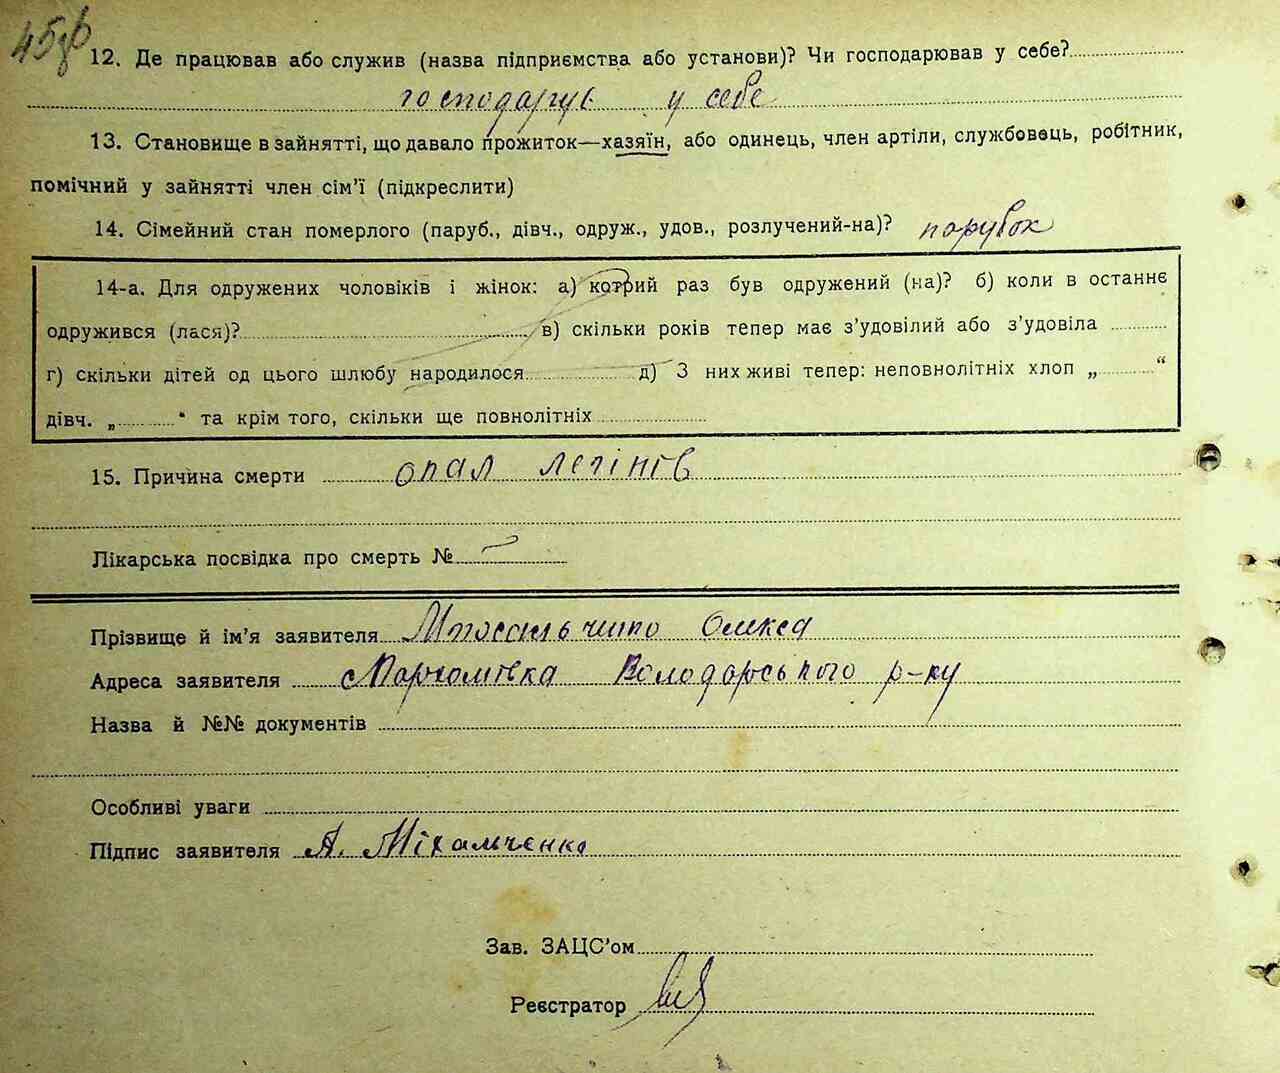 45зв
12. Де працював або служив (назва підприємства або установи)? Чи господарював у себе?
господарув у себе
13. Становище в зайнятті, що давало прожиток—хазяїн, або одинець, член артіли, службовець, робітник,
помічний у зайнятті член сім'ї (підкреслити)
14. Сімейний стан померлого (паруб., дівч., одруж., удов., розлучений-на)? парубок
14-а. Для одружених чоловіків і жінок: а) котрий раз був одружений (на)? б) коли в останнє
одружився (лася)? в) скільки років тепер має з'удовілий або з'удовіла
г) скільки дітей од цього шлюбу народилося д) З них живі тепер: неповнолітніх хлоп „ “
дівч. „ “ та крім того, скільки ще повнолітніх
15. Причина смерти опал легінів
Лікарська посвідка про смерть №
Прізвище й ім'я заявителя Олекса
Адреса заявителя Володарського р-ку
Назва й №№ документів
Особливі уваги
Підпис заявителя А. Міхальченко
Зав. ЗАЦС'ом
Реєстратор